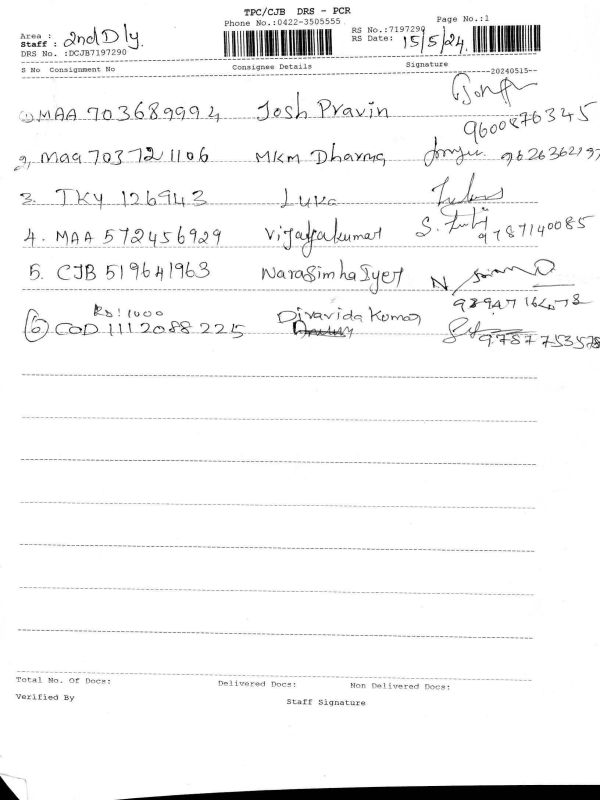 TPC/CJB DRS - PCR
Phone No.:0422-3505555 Page No.:1
Area :
Staff : 2nd Dly. RS No.:7197290
DRS No. :DCJB7197290 RS Date: 15/5/24.
S No Consignment No Consignee Details Signature --20240515--
1) MAA 703689994 Josh Pravin 9600876345
2) Maa 703721106 MKM Dharma 9626362197
3. TKY 126943 Luka
4. MAA 572456929 Vijayakumar 9787140085
5. CJB 519641963 Narasimha Iyer
Rs: 1000
6 COD 1112088225 Diravida Kumar
Total No. Of Docs: Delivered Docs: Non Delivered Docs:
Verified By Staff Signature